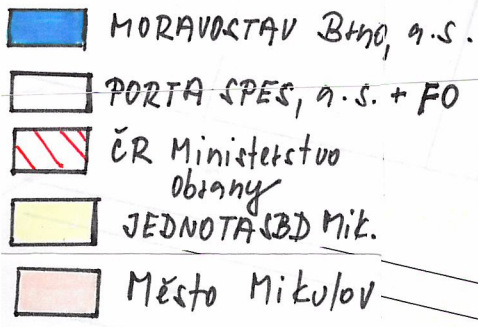 MORAVOSTAV Brno, a.s.
PORTA SPES, a.s. + FO
ČR Ministerstvo
Obrany
JEDNOTASBD Mik.
Město Mikulov